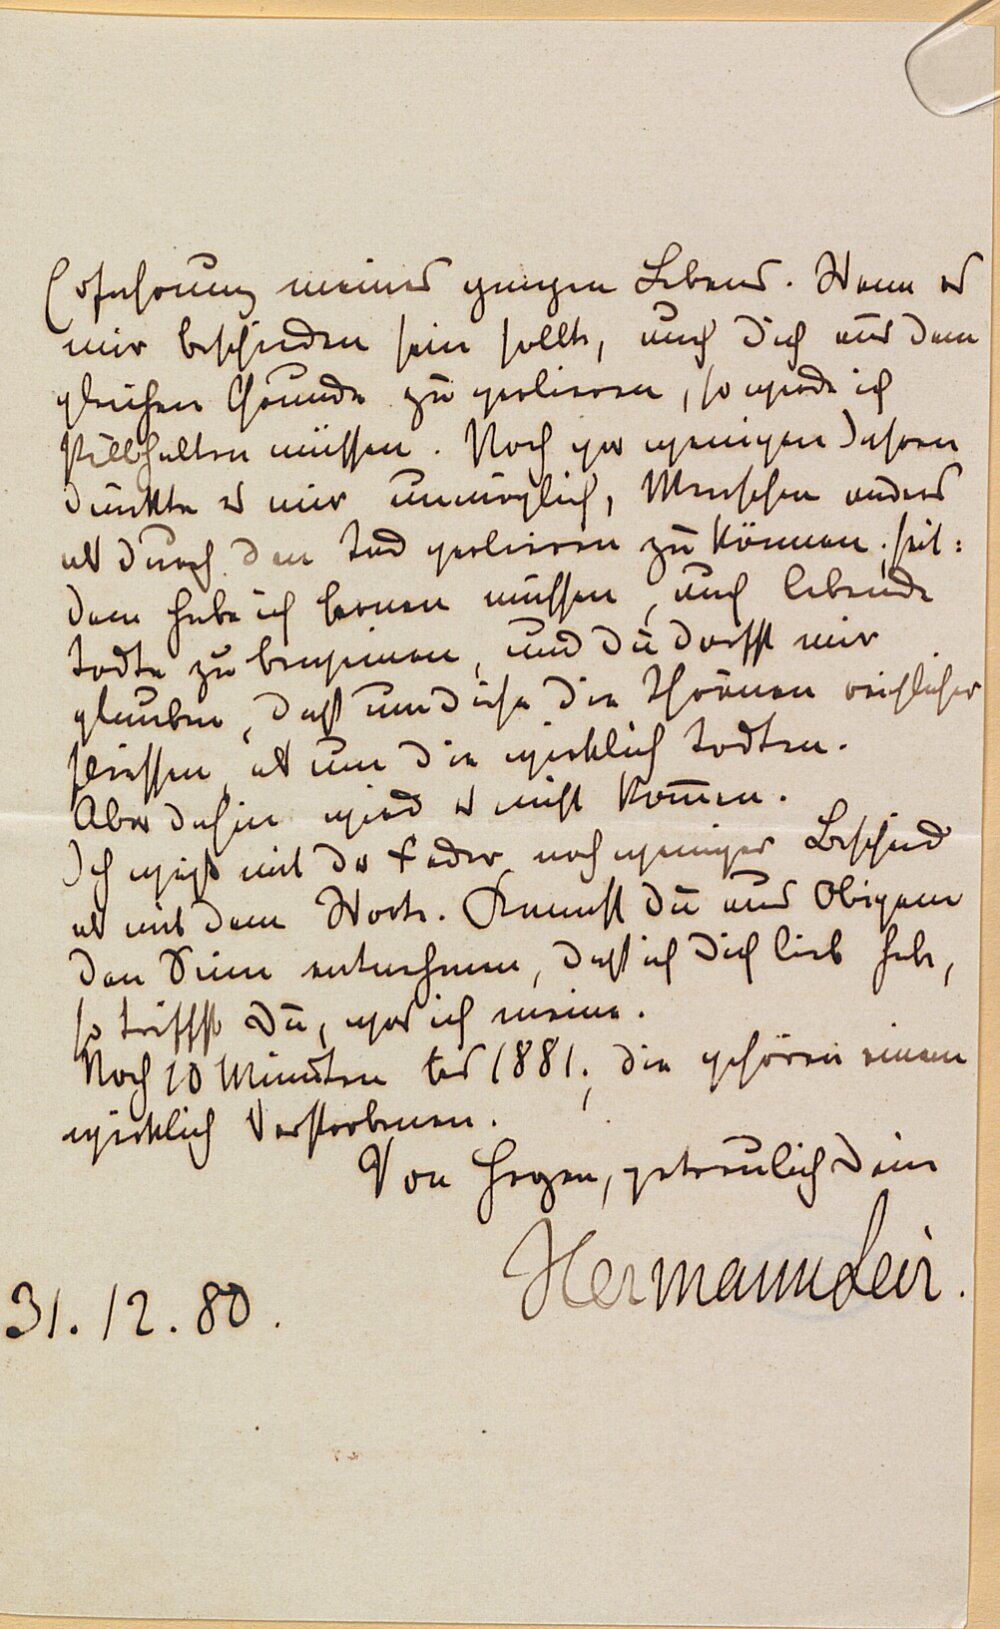 Erfahrung meines ganzen Lebens. Wenn es
mir beschieden sein sollte, auch Dich aus dem
gleichen Grunde zu verlieren, so werde ich
stillhalten müssen. Noch vor wenigen Jahren
dünkte es mir unmöglich, Menschen anders
als durch den Tod verlieren zu können; seit=
dem habe ich lernen müssen, auch lebende
Todte zu beweinen, und Du darfst mir
glauben, daß um diese die Thränen reichlicher
fliessen als um die wirklich Todten.
Aber dahin wird es nicht kom̄en.
Ich weiß mit der Feder noch weniger Bescheid
als mit dem Worte. Kannst Du aus Obigem
den Sinn entnehmen, daß ich Dich lieb habe,
so triffst Du, was ich meine.
Noch 10 Minuten bis 1881; die gehören einem
wirklich Verstorbenen.
Von Herzen, getreulich Dein
Hermann Levi.
31.12.80.